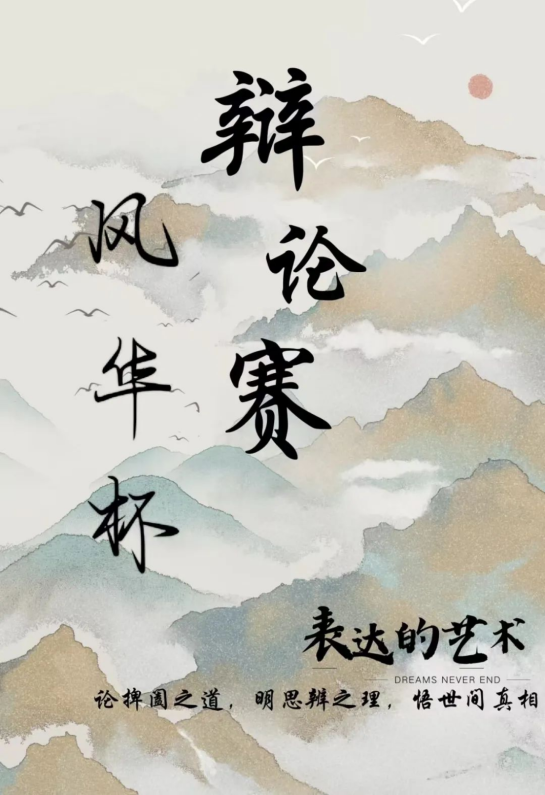 风华杯
辩论赛
表达的艺术
DREAMS NEVER END
论捭阖之道，明思辨之理，悟世间真相